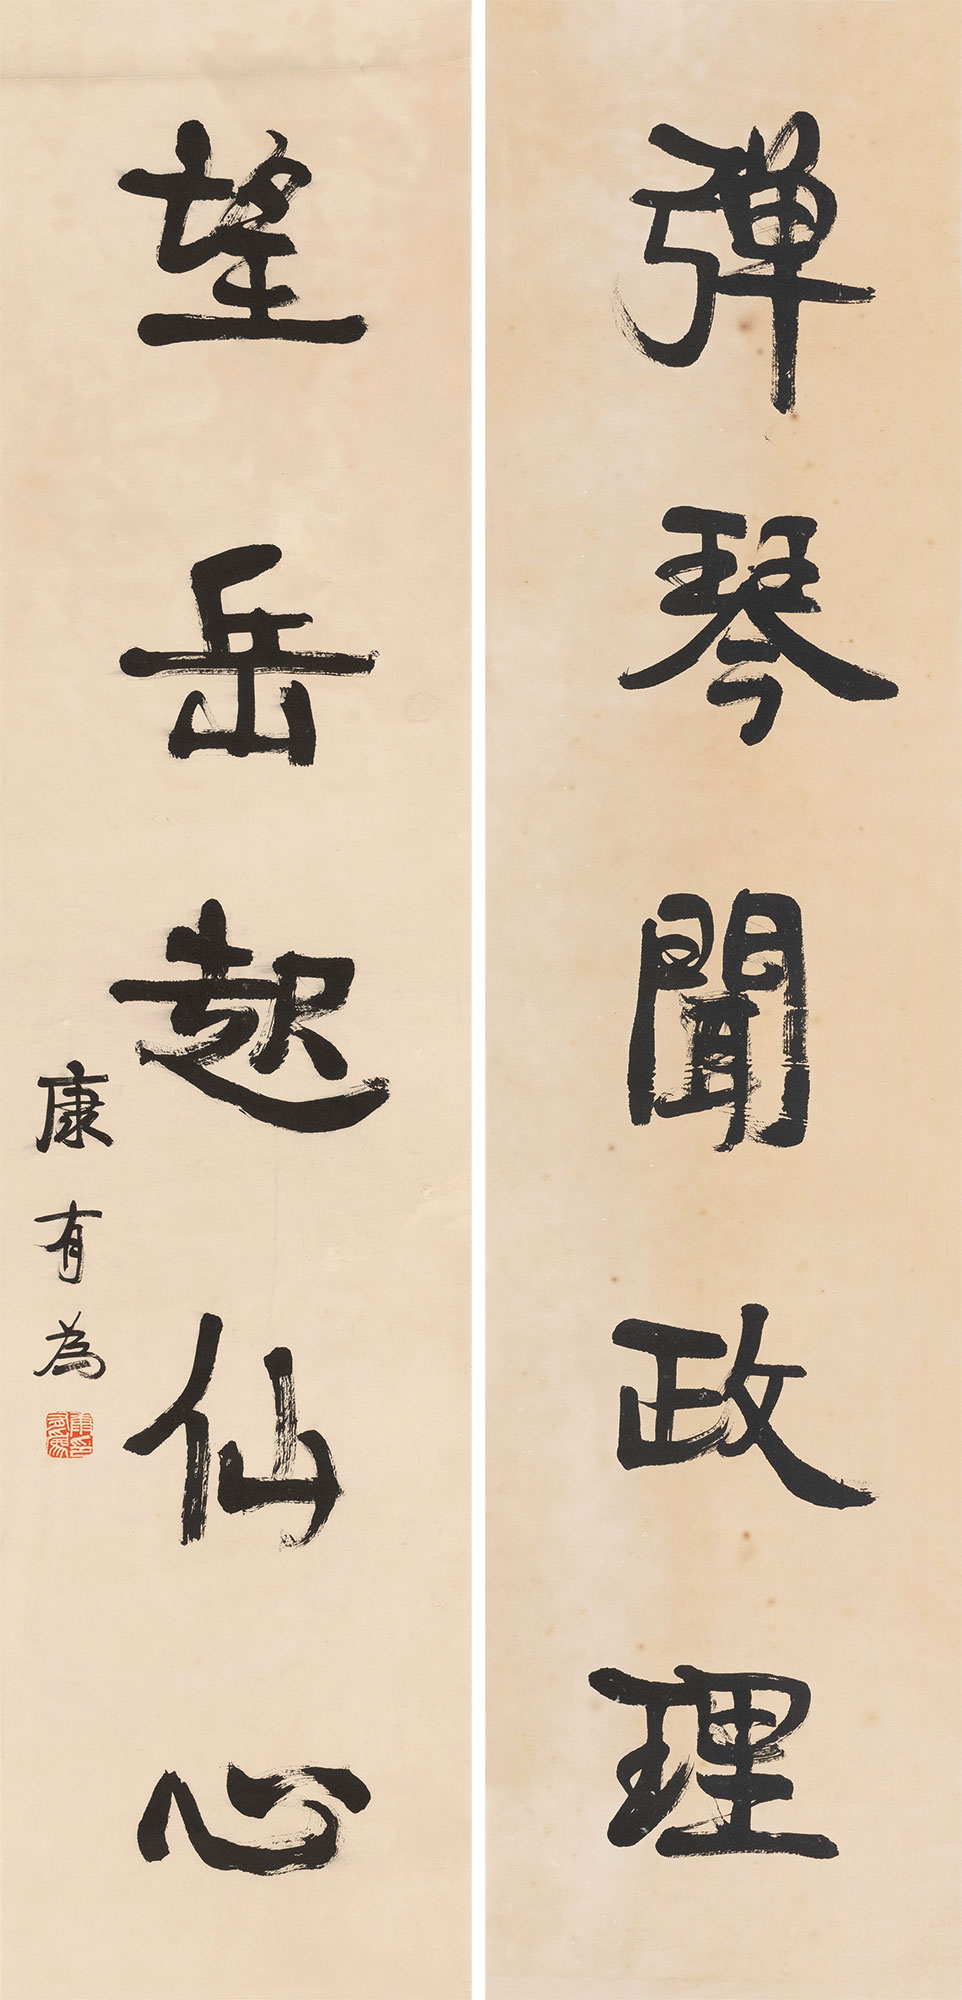 彈琴聞政理
望岳起仙心
康有為